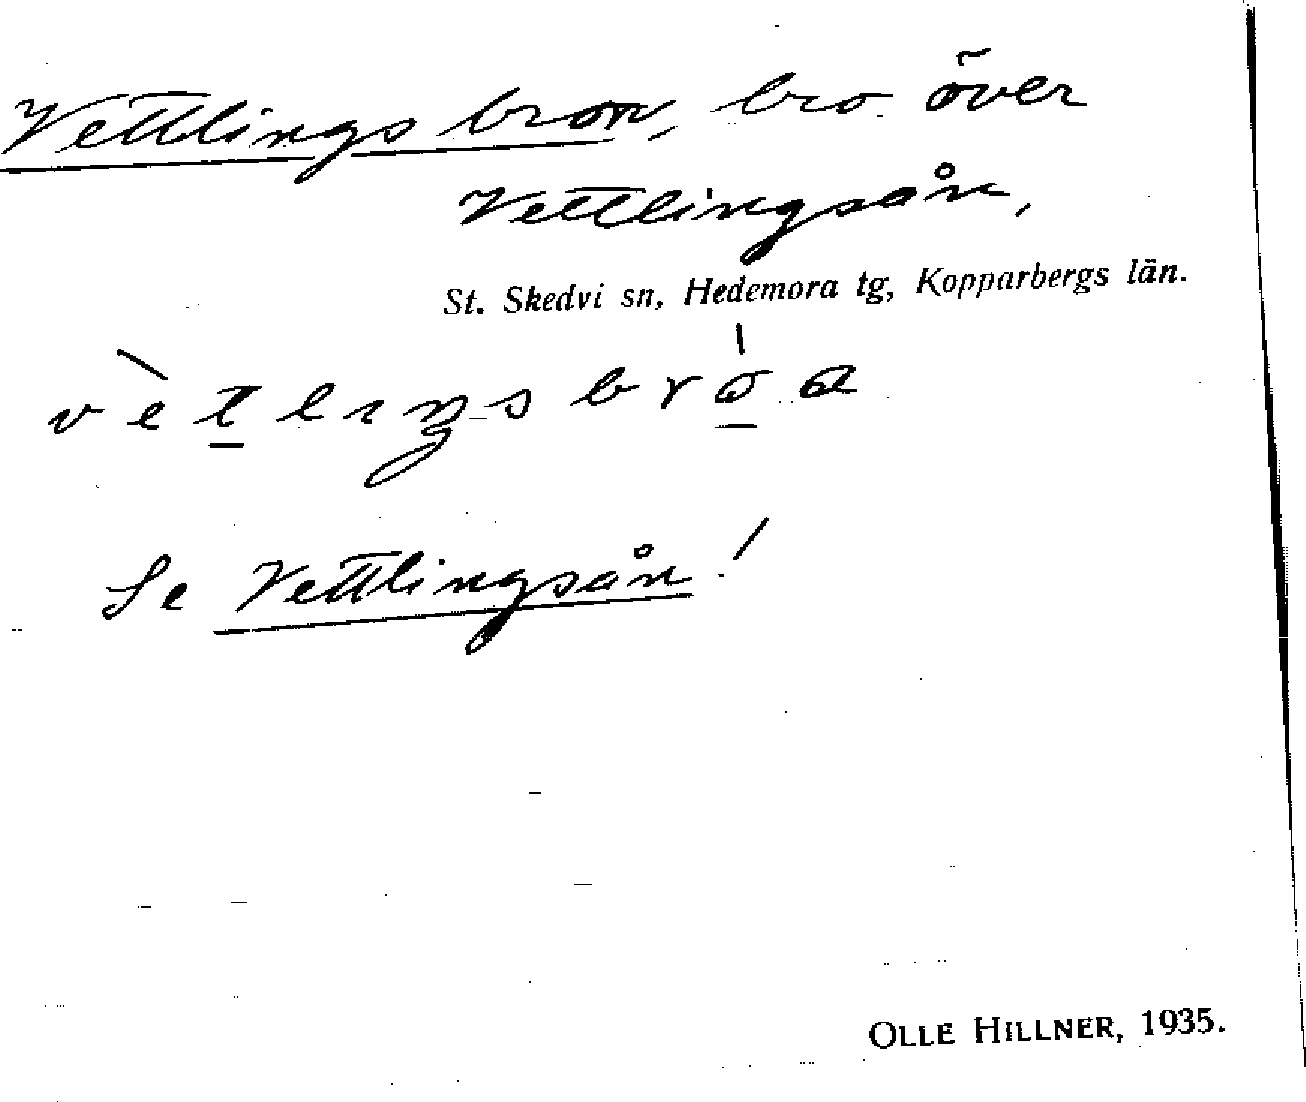 Vettlingsbron, bro över
Vettlingsån,
St. Skedvi sn, Hedemora tg, Kopparbergs län.
Se Vettlingsån!
OLLE HILLNER, 1935.